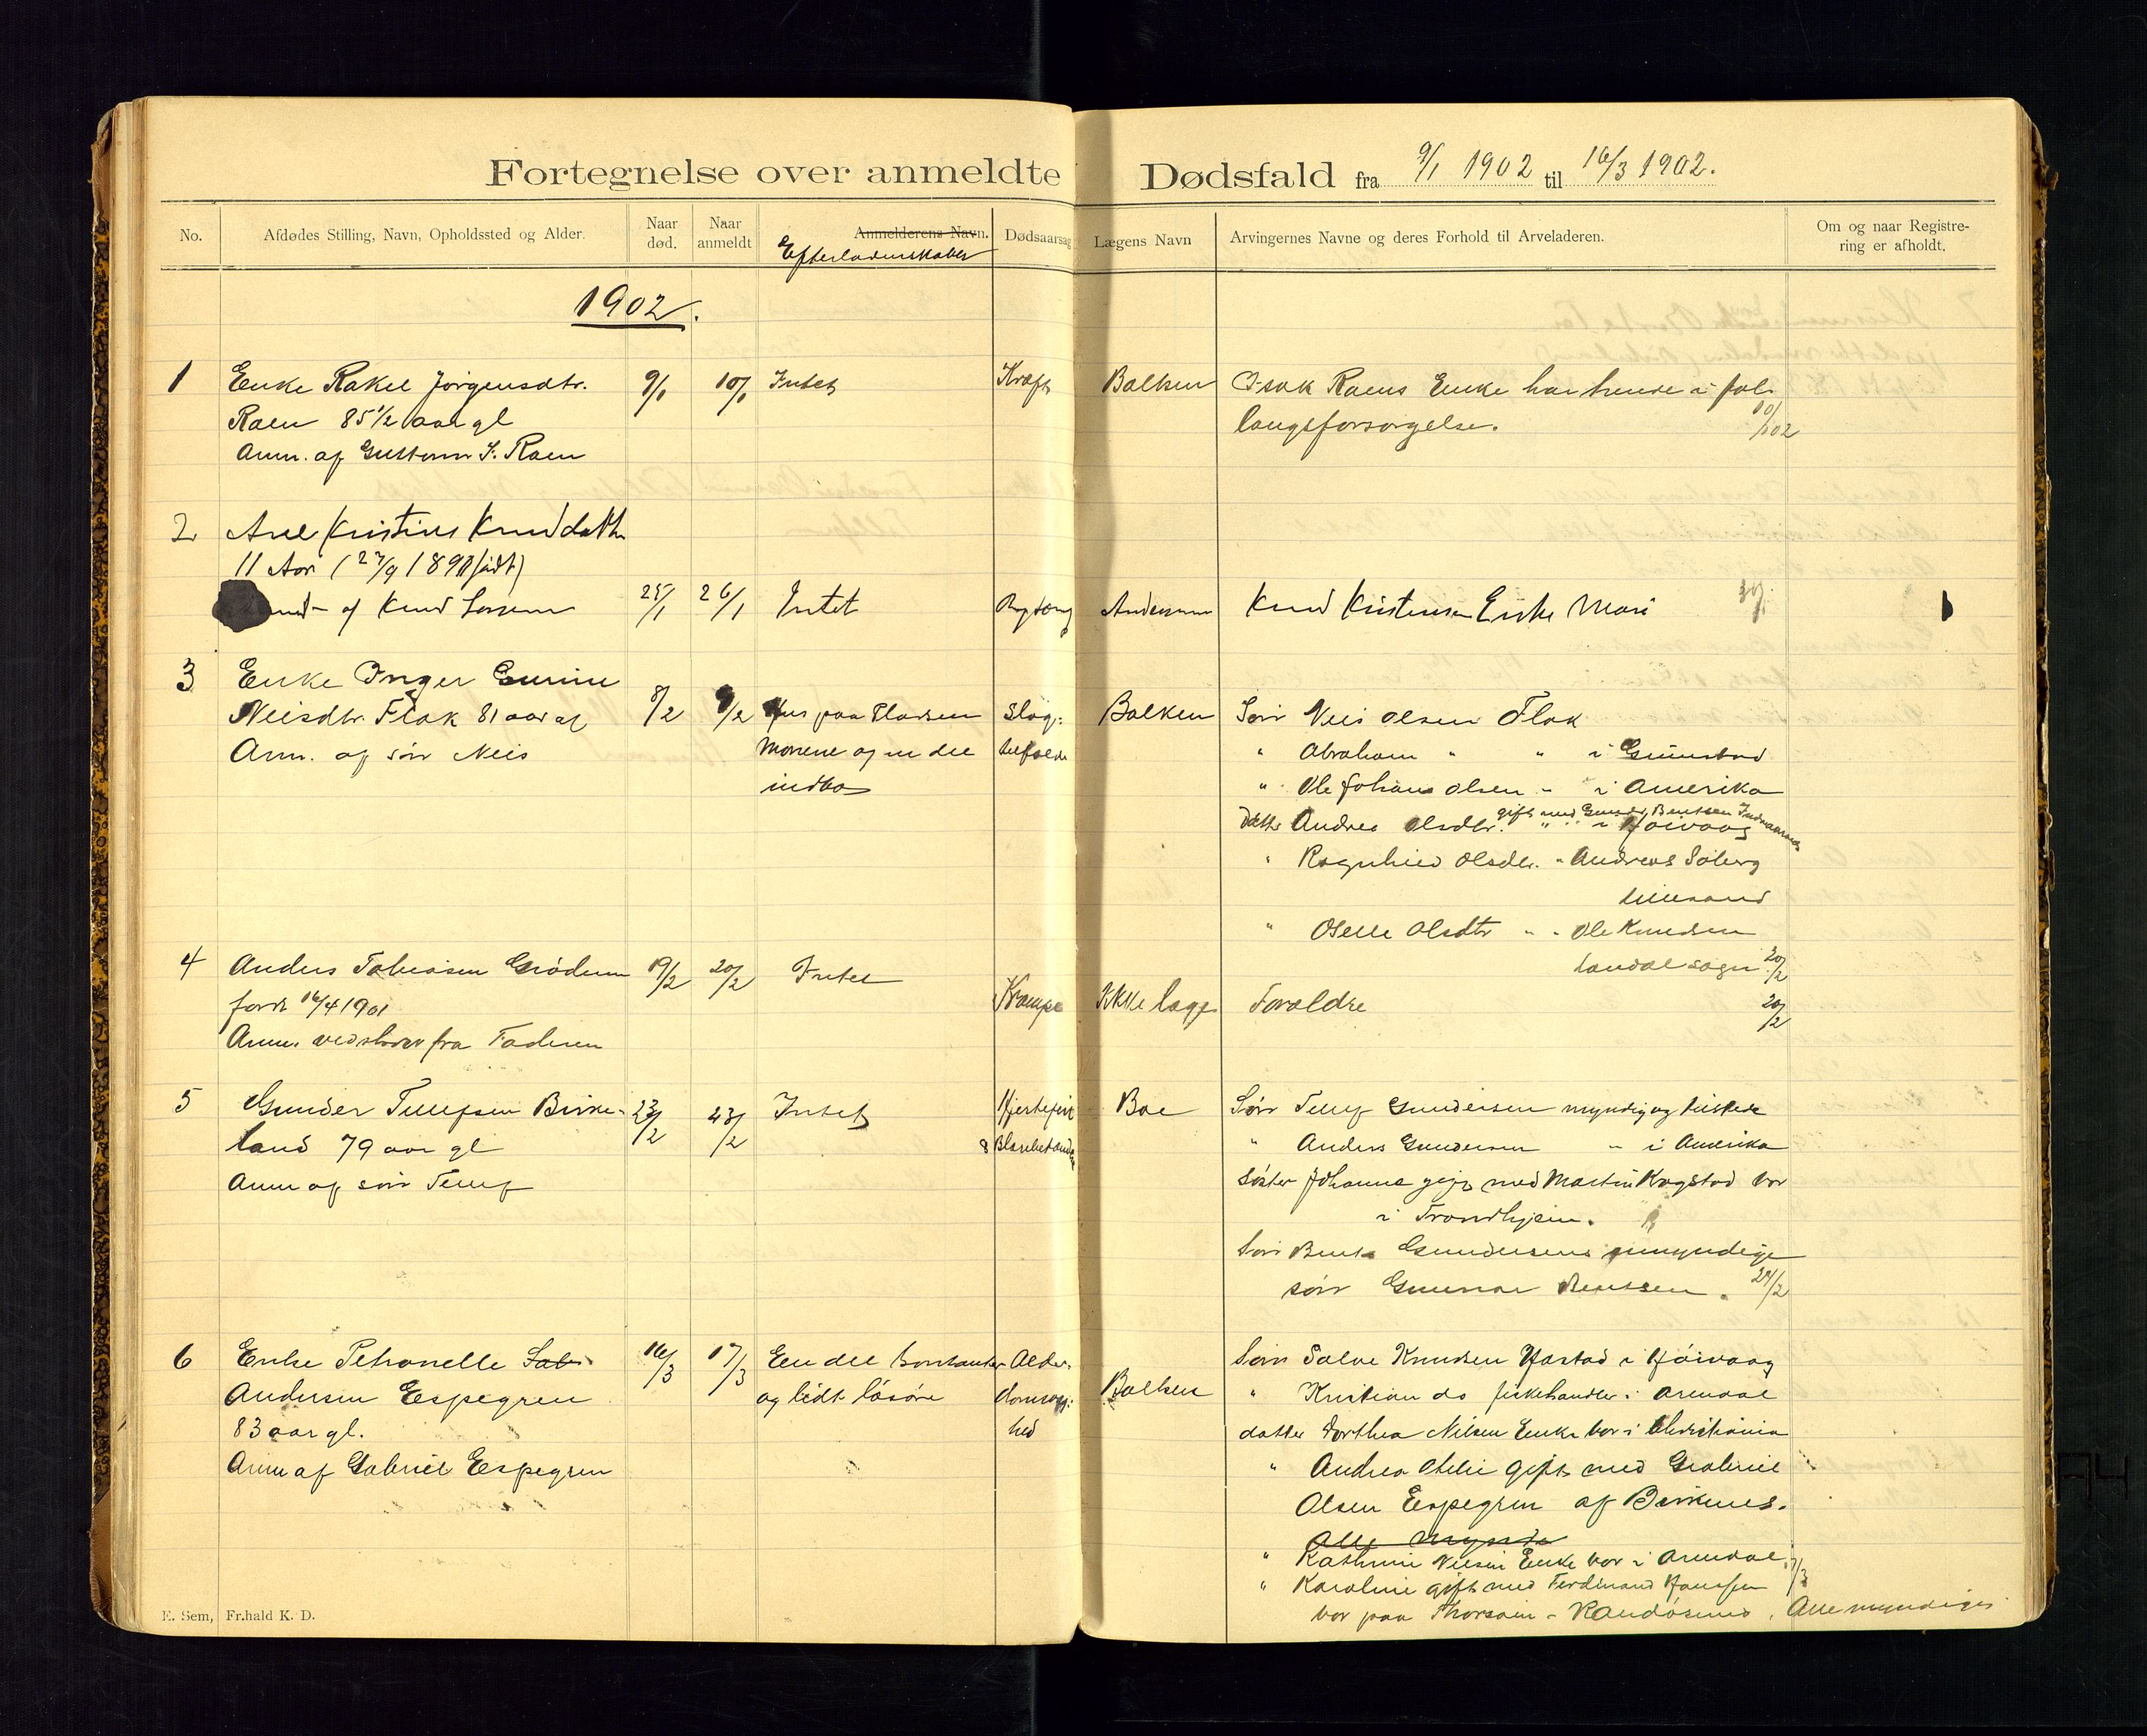 Fortegnelse over anmeldte Dødsfald fra 9/1 1902 til 16/3 1902.
No.
Afdødes Stilling, Navn, Opholdssted og Alder.
Naar død.
Naar anmeldt
Anmelderens Navn.
Efterladenskaber
Dødsaarsag
Lægens Navn
Arvingernes Navne og deres Forhold til Arveladeren.
Om og naar Registrering er afholdt.
1902.
1 Enke Rakel Jørgensdtr. 9/1 10/1 Intet Kræft Balken Isak Raens Enke har
Raen 85 1/2 aar gl langsforsørgelse. 10/1 02
Anm. af Gustav I. Raen
2 Kristine
11 Aar (27/9 1890 født)
af Knud 25/1 26/1 Intet Andersen Knud Kristensen Enke Mari
3 Enke Inger Gurine
Neisdtr. Flak 81 aar gl 8/2 9/2 Hus paa Pladsen Slag: Balken Søn Neis Olsen Flak
Anm. af søn Neis Moren og en del tilfælde " Abraham " " i Grimstad
indbo " Ole Johan Olsen - i Amerika
gift med Gunder Bentsen
Datter Andrea Olsdtr. " " i Høivaag
" Ragnhild Olsdtr. " Andreas Solberg
Lillesand
" Oselle Olsdtr " - Ole Knudsen
Landal sogn 20/2
4 Anders Tobiasen Grødum 19/2 20/2 Intet
født 16/4 1901 Krampe Ikke læge Forældre 20/2
Anm. ved skriv fra Faderen
5 Gunder Tellefsen Birke- 23/2 23/2 Intet Hjertefeil Boe Søn Tellef Gundersen myndig og tilstede
land 79 aar gl & Blærebetændelse " Anders Gundersen " i Amerika
Anm af søn Tellef Søster Johanna gift med Martin Kragstad bor
i Trondhjem.
Søn Bent Gundersens umyndige
søn Gunnar Bentsen. 24/2
6 Enke Petronelle 16/3 17/3 En del Alder- Søn Salve Knudsen Hastad i Høivaag
Andersen Espegren og lidt løsøre domssvag: Balken " Kristian do fiskehandler i Arendal
83 aar gl. hed datter Dorthea Nilsen Enke bor i Christiania
Anm af Gabriel Espegren " Andrea Otelie gift med Gabriel
Olsen Espegren af Birkenes.
Alle myndige
" Kathrine Nilsen Enke bor i Arendal 17/3
" Karoline gift med Ferdinand Hanssen
bor paa - Randøsund. Alle myndige
E. Sem, Fr.hald K. D.